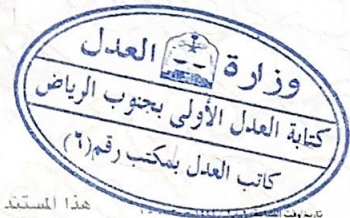 وزارة العدل
كتابة العدل الأولى بجنوب الرياض
كاتب العدل بمكتب رقم (٦)
هذا المستند